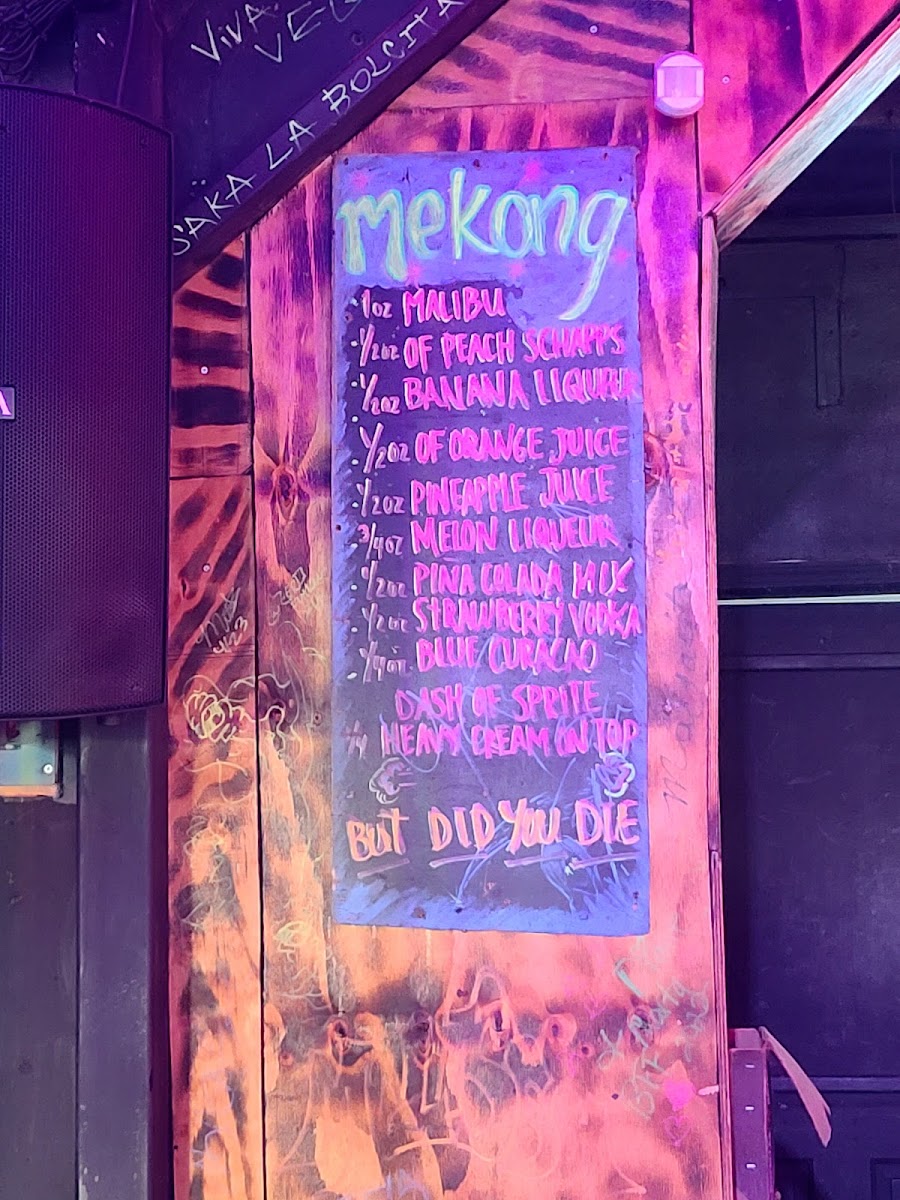 VIVA
SAKA LA BOLCITA
mekong
1oz MALIBU
1/2oz OF PEACH SCHAPPS
1/2oz BANANA LIQUEUR
1/2oz OF ORANGE JUICE
1/2oz PINEAPPLE JUICE
3/4oz MELON LIQUEUR
1/2oz PINA COLADA MIX
1/2oz STRAWBERRY VODKA
1/4oz BLUE CURACAO
DASH OF SPRITE
HEAVY CREAM ON TOP
BUT DID YOU DIE